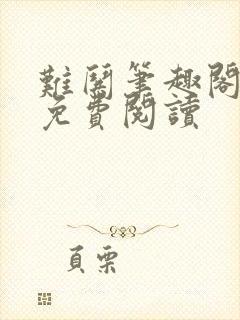 難鬭筆趣閣
免費閱讀
頁栗